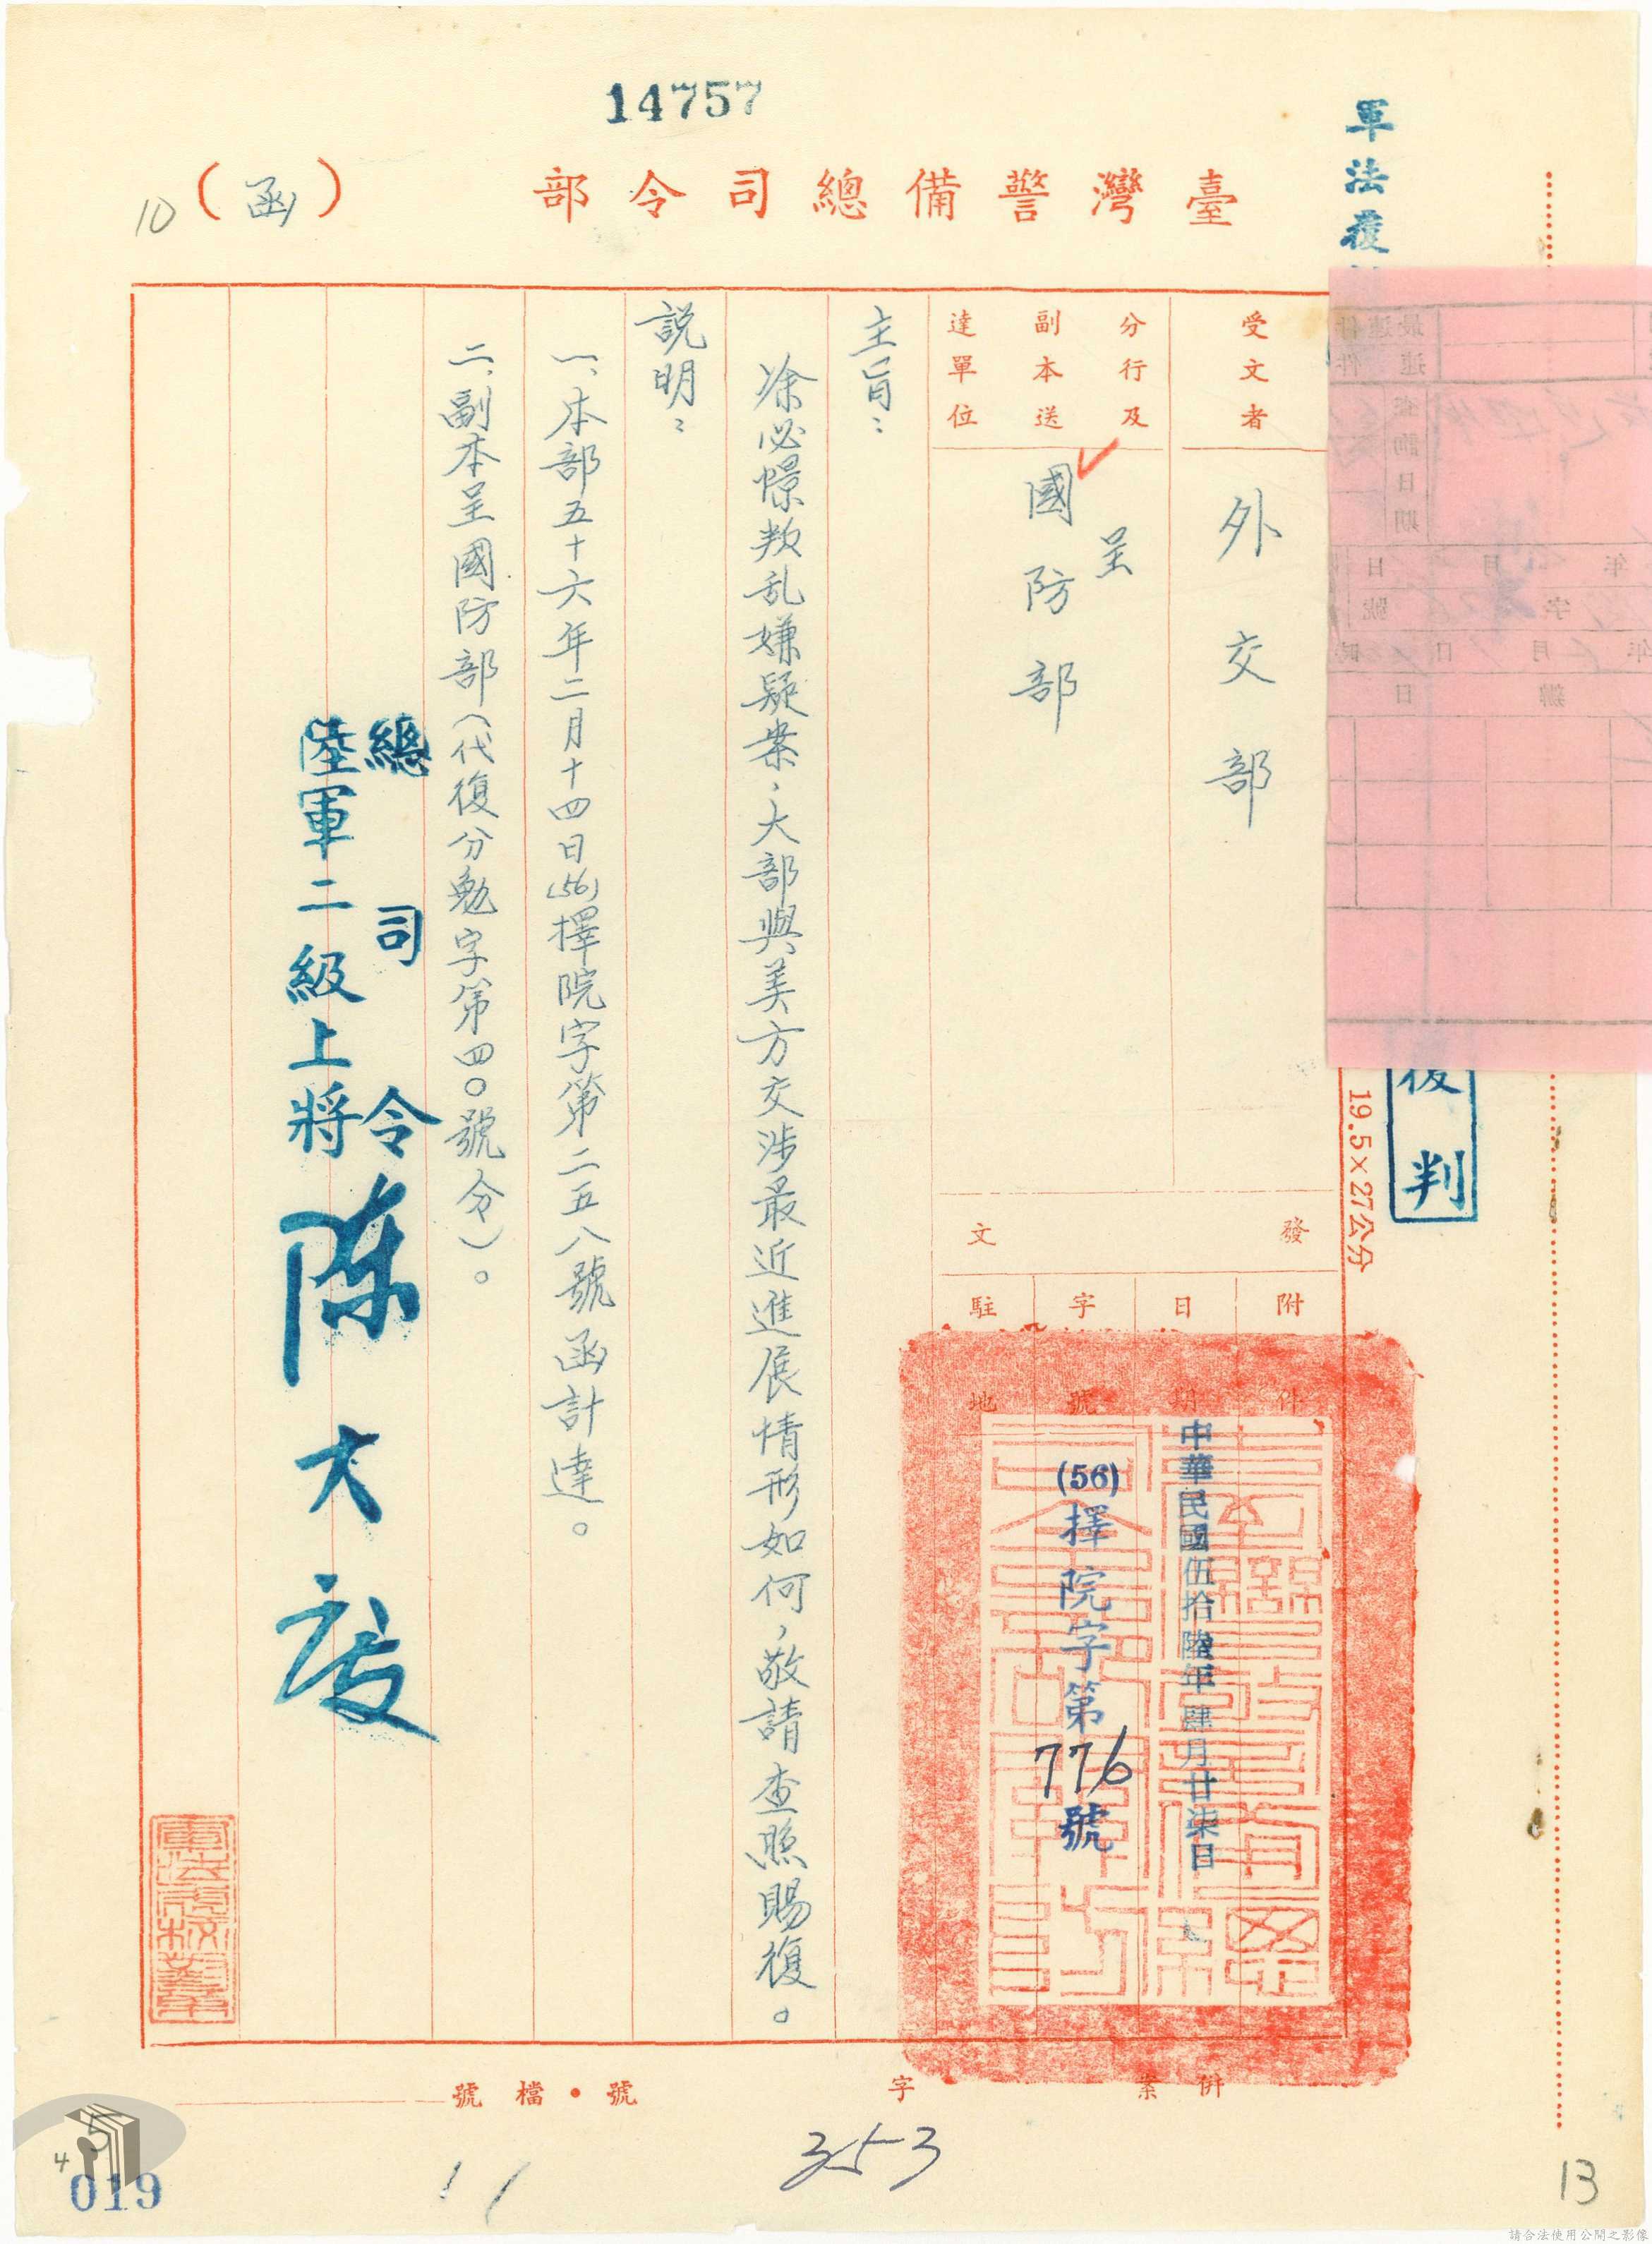 14757
臺灣警備總司令部
（函）
10
軍法覆
覆判
受文者
外交部
分行及副本送達單位
呈
國防部
發文
附件
日期
中華民國伍拾陸年肆月廿柒日
字號
(56)擇院字第776號
駐地
主旨：
涂必憬叛乱嫌疑案，大部與美方交涉最近進展情形如何，敬請查照賜復。
説明：
一、本部五十六年二月十四日(56)擇院字第二五八號函計達。
二、副本呈國防部（代復分勉字第四〇號令）。
總司令
陸軍二級上將陳大慶
19.5×27公分
併案
字
號・檔號
353
11
13
5
4
019
請合法使用公開之影像